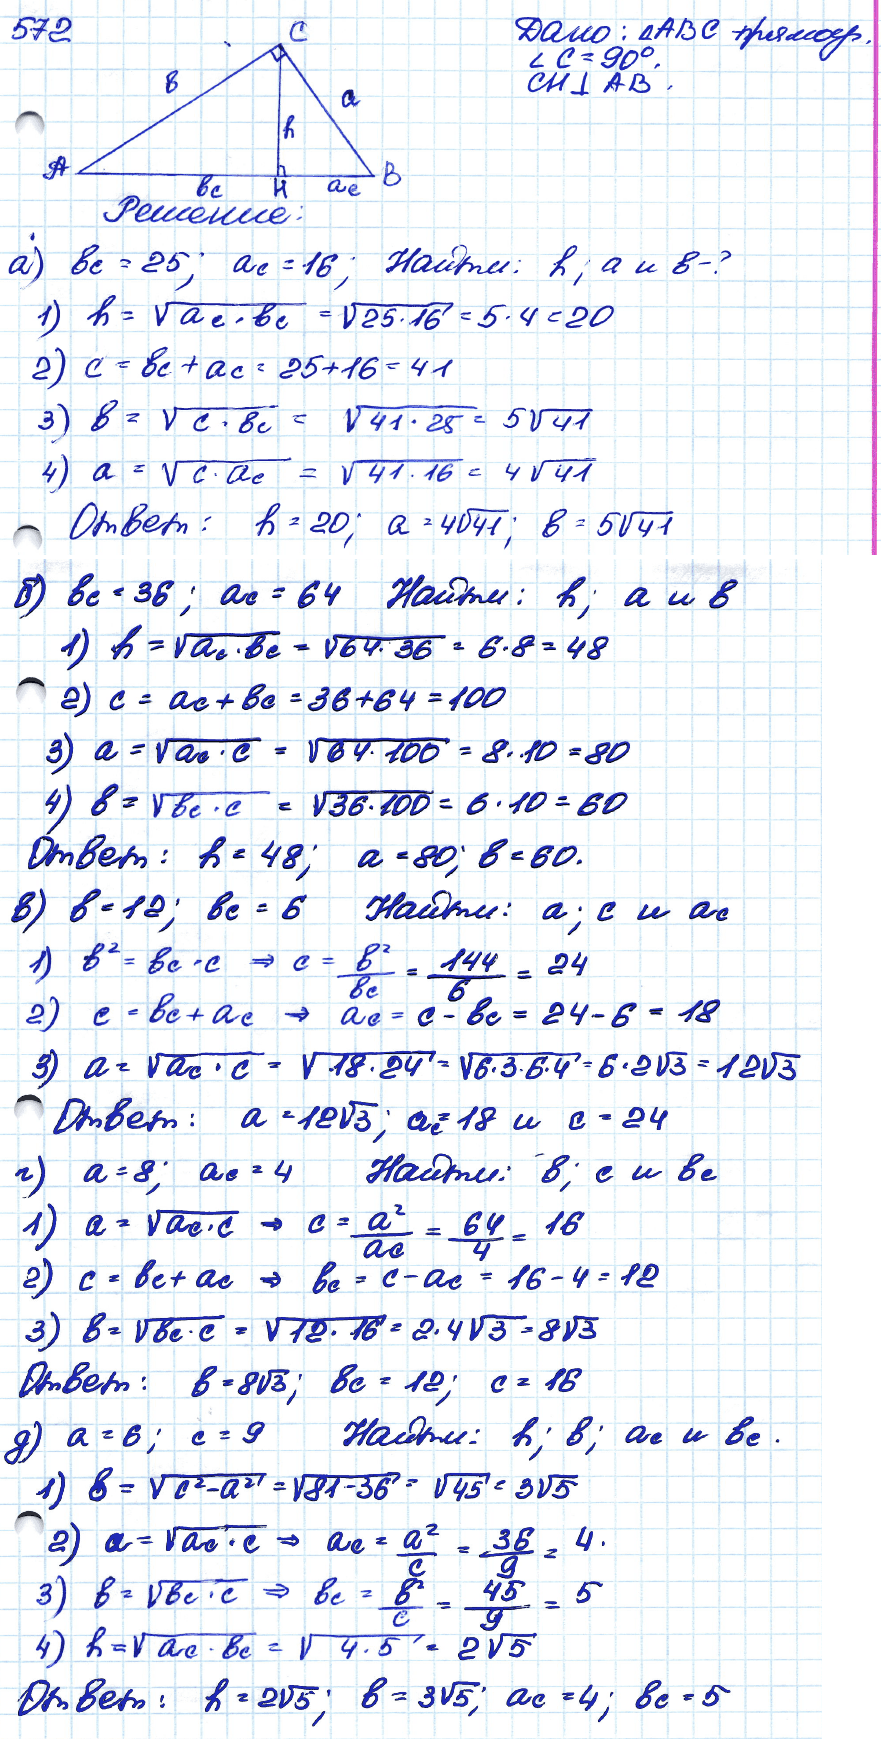 572
Дано: △ABC прямоуг.
∠C = 90°.
CH ⊥ AB.
C
в
a
h
A
вc
H
ac
B
Решение:
а) вc = 25; ac = 16; Найти: h; a и в-?
1) h = √(ac · вc) = √(25·16) = 5·4 = 20
2) c = вc + ac = 25+16 = 41
3) в = √(c · вc) = √(41·25) = 5√41
4) a = √(c · ac) = √(41·16) = 4√41
Ответ: h = 20; a = 4√41; в = 5√41
б) вc = 36; ac = 64 Найти: h; a и в
1) h = √(ac · вc) = √(64·36) = 6·8 = 48
2) c = ac + вc = 36+64 = 100
3) a = √(ac · c) = √(64·100) = 8·10 = 80
4) в = √(вc · c) = √(36·100) = 6·10 = 60
Ответ: h = 48; a = 80; в = 60.
в) в = 12; вc = 6 Найти: a; c и ac
1) в² = вc · c ⇒ c = в²/вc = 144/6 = 24
2) c = вc + ac → ac = c - вc = 24 - 6 = 18
3) a = √(ac · c) = √(18·24) = √(6·3·6·4) = 6·2√3 = 12√3
Ответ: a = 12√3; ac = 18 и c = 24
г) a = 8; ac = 4 Найти: в; c и вc
1) a = √(ac · c) → c = a²/ac = 64/4 = 16
2) c = вc + ac ⇒ вc = c - ac = 16 - 4 = 12
3) в = √(вc · c) = √(12·16) = 2·4√3 = 8√3
Ответ: в = 8√3; вc = 12; c = 16
д) a = 6; c = 9 Найти: h; в; ac и вc.
1) в = √(c² - a²) = √(81-36) = √45 = 3√5
2) a = √(ac · c) ⇒ ac = a²/c = 36/9 = 4.
3) в = √(вc · c) ⇒ вc = в²/c = 45/9 = 5
4) h = √(ac · вc) = √(4·5) = 2√5
Ответ: h = 2√5; в = 3√5; ac = 4; вc = 5